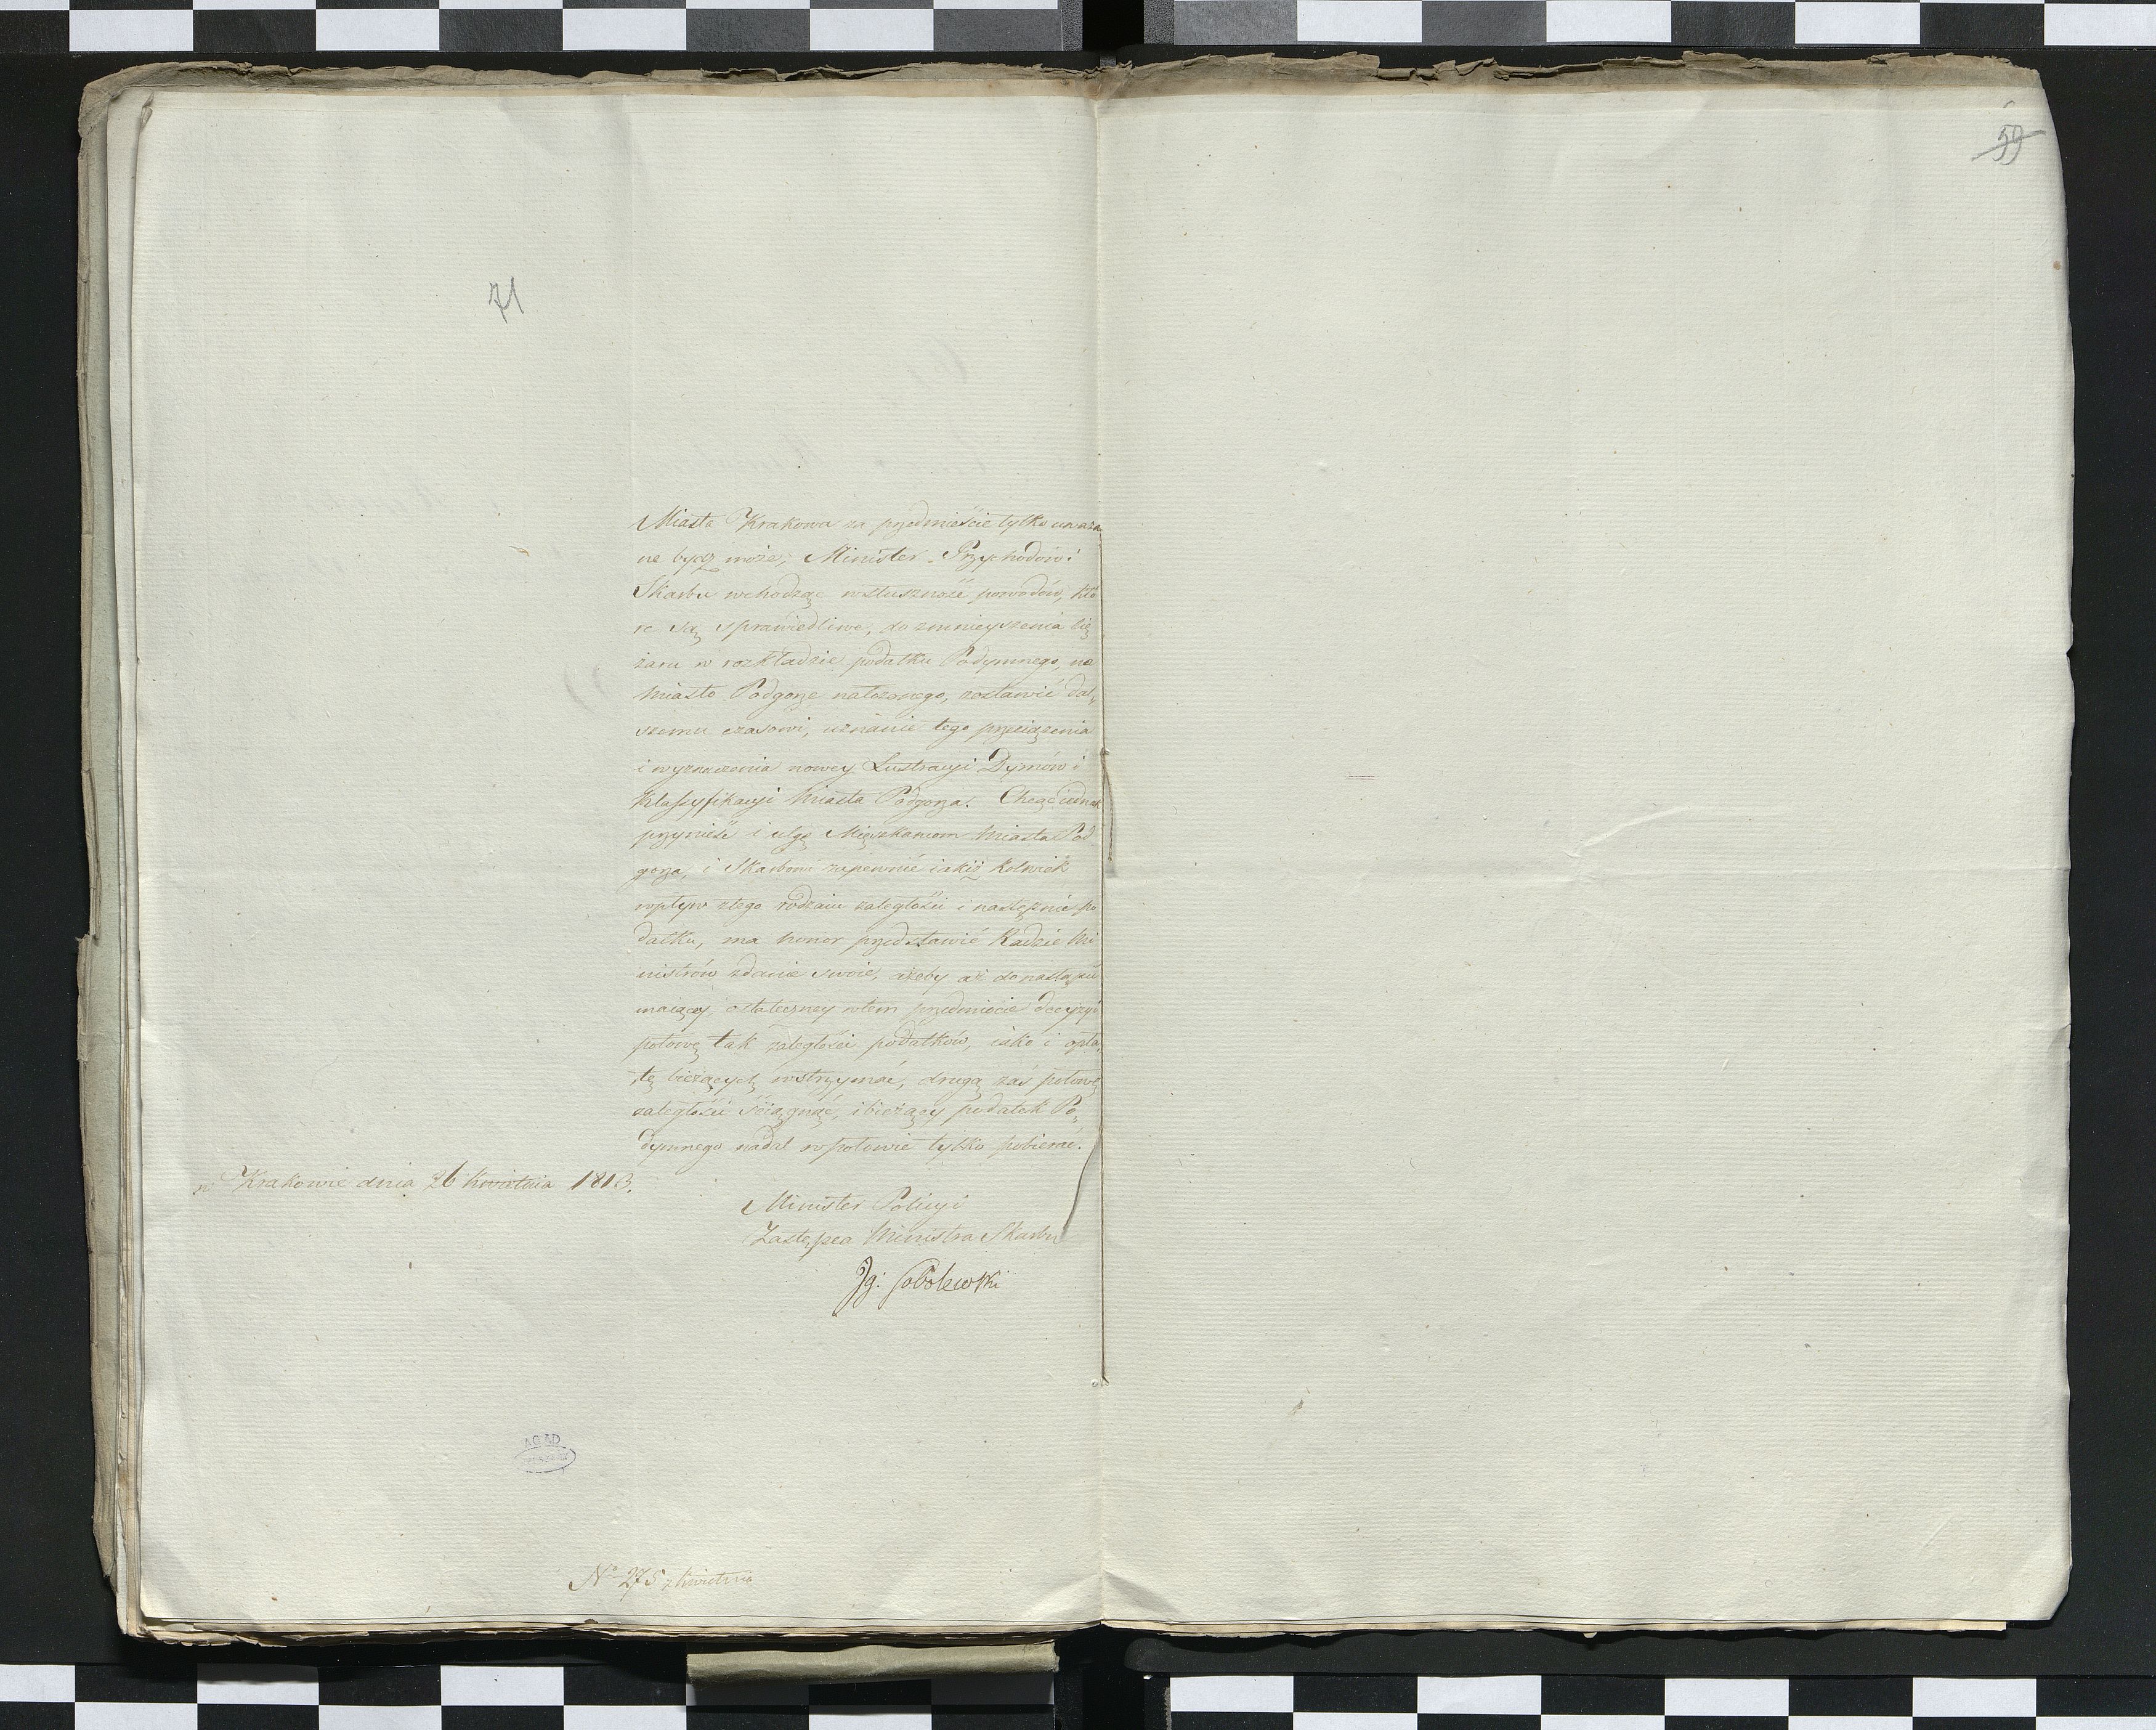 59
71
Miasta Krakowa za przedmieście tylko uważa
ne bydź może; Minister Przychodów i
Skarbu wchodząc w słuszność powodów, któ
re są sprawiedliwe, do zmnieyszenia cię
żaru w rozkładzie podatku Podymnego, na
Miasto Podgorze nałożonego, zostawić dal„
szemu czasowi, uznanie tego przeciążenia
i wyznaczenia nowey Lustracyi Dymów i
Klassyfikacyi Miasta Podgorza. Chcąc iednak
przynieść i ulgę Mieszkańcom Miasta Pod
gorza, i Skarbowi zapewnić iakiż kolwiek
wpływ z tego rodzaiu zaległości i następnie po
datku, ma honor przedstawić Radzie Mi
nistrów zdanie swoie, ażeby aż do nastąpić
maiącey ostateczney w tem przedmiocie decyzyi
połowę tak zaległości podatków, iako i opła„
tę bieżących wstrzymać, drugą zaś połowę
zaległości ściągnąć, i bieżący podatek Po„
dymnego nadal w połowie tylko pobierać.
w Krakowie dnia 26 kwietnia 1813.
Minister Policyi
Zastępca Ministra Skarbu
Ig: Sobolewski
AGAD
No 275 z kwietnia